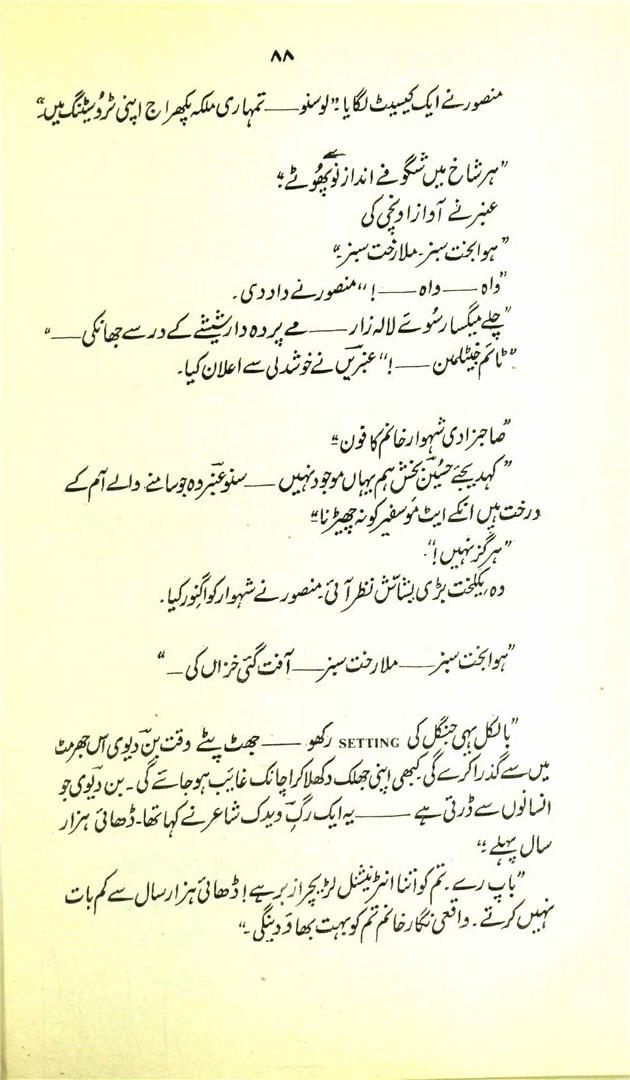 ۸۸
منصور نے ایک کیسیٹ لگایا۔ "لو سنو —— تمہاری ملکہ پکھراج اپنی ٹرو سیٹنگ میں۔"
"ہر شاخ میں شگوفے انداز نو سے پھوٹے۔"
عنبر نے آواز اونچی کی
"ہوا بخت سبز۔ ملا رخت سبز۔"
"واہ —— واہ —— !" منصور نے داد دی۔
"چلے میگسار سُوئے لالہ زار —— مے پردہ دار شیشے کے در سے جھانکی —— "
"ٹائم جینٹلمین —— !" عنبریں نے خوشدلی سے اعلان کیا۔
"صاحبزادی شہوار خانم کا فون۔"
"کہدیجئے حسین بخش ہم یہاں موجود نہیں —— سنو عنبر وہ جو سامنے والے آم کے
درخت ہیں انکے ایٹ موسفیر کو نہ چھیڑنا۔"
"ہرگز نہیں!"
وہ یکلخت بڑی بشاش نظر آئی۔ منصور نے شہوار کو اگنور کیا۔
"ہوا بخت سبز —— ملا رخت سبز —— آفت گئی خزاں کی — "
"بالکل یہی جنگل کی SETTING رکھو —— جھٹ پٹے وقت بن دیوی اس جھرمٹ
میں سے گذرا کرے گی کبھی اپنی جھلک دکھلا کر اچانک غائب ہو جائے گی۔ بن دیوی جو
انسانوں سے ڈرتی ہے —— یہ ایک رگ ویدک شاعر نے کہا تھا۔ ڈھائی ہزار
سال پہلے۔"
"باپ رے۔ تم کو اتنا انٹرنیشنل لٹریچر ازبر ہے! ڈھائی ہزار سال سے کم بات
نہیں کرتے۔ واقعی نگار خانم تم کو بہت بھاؤ دینگی۔"